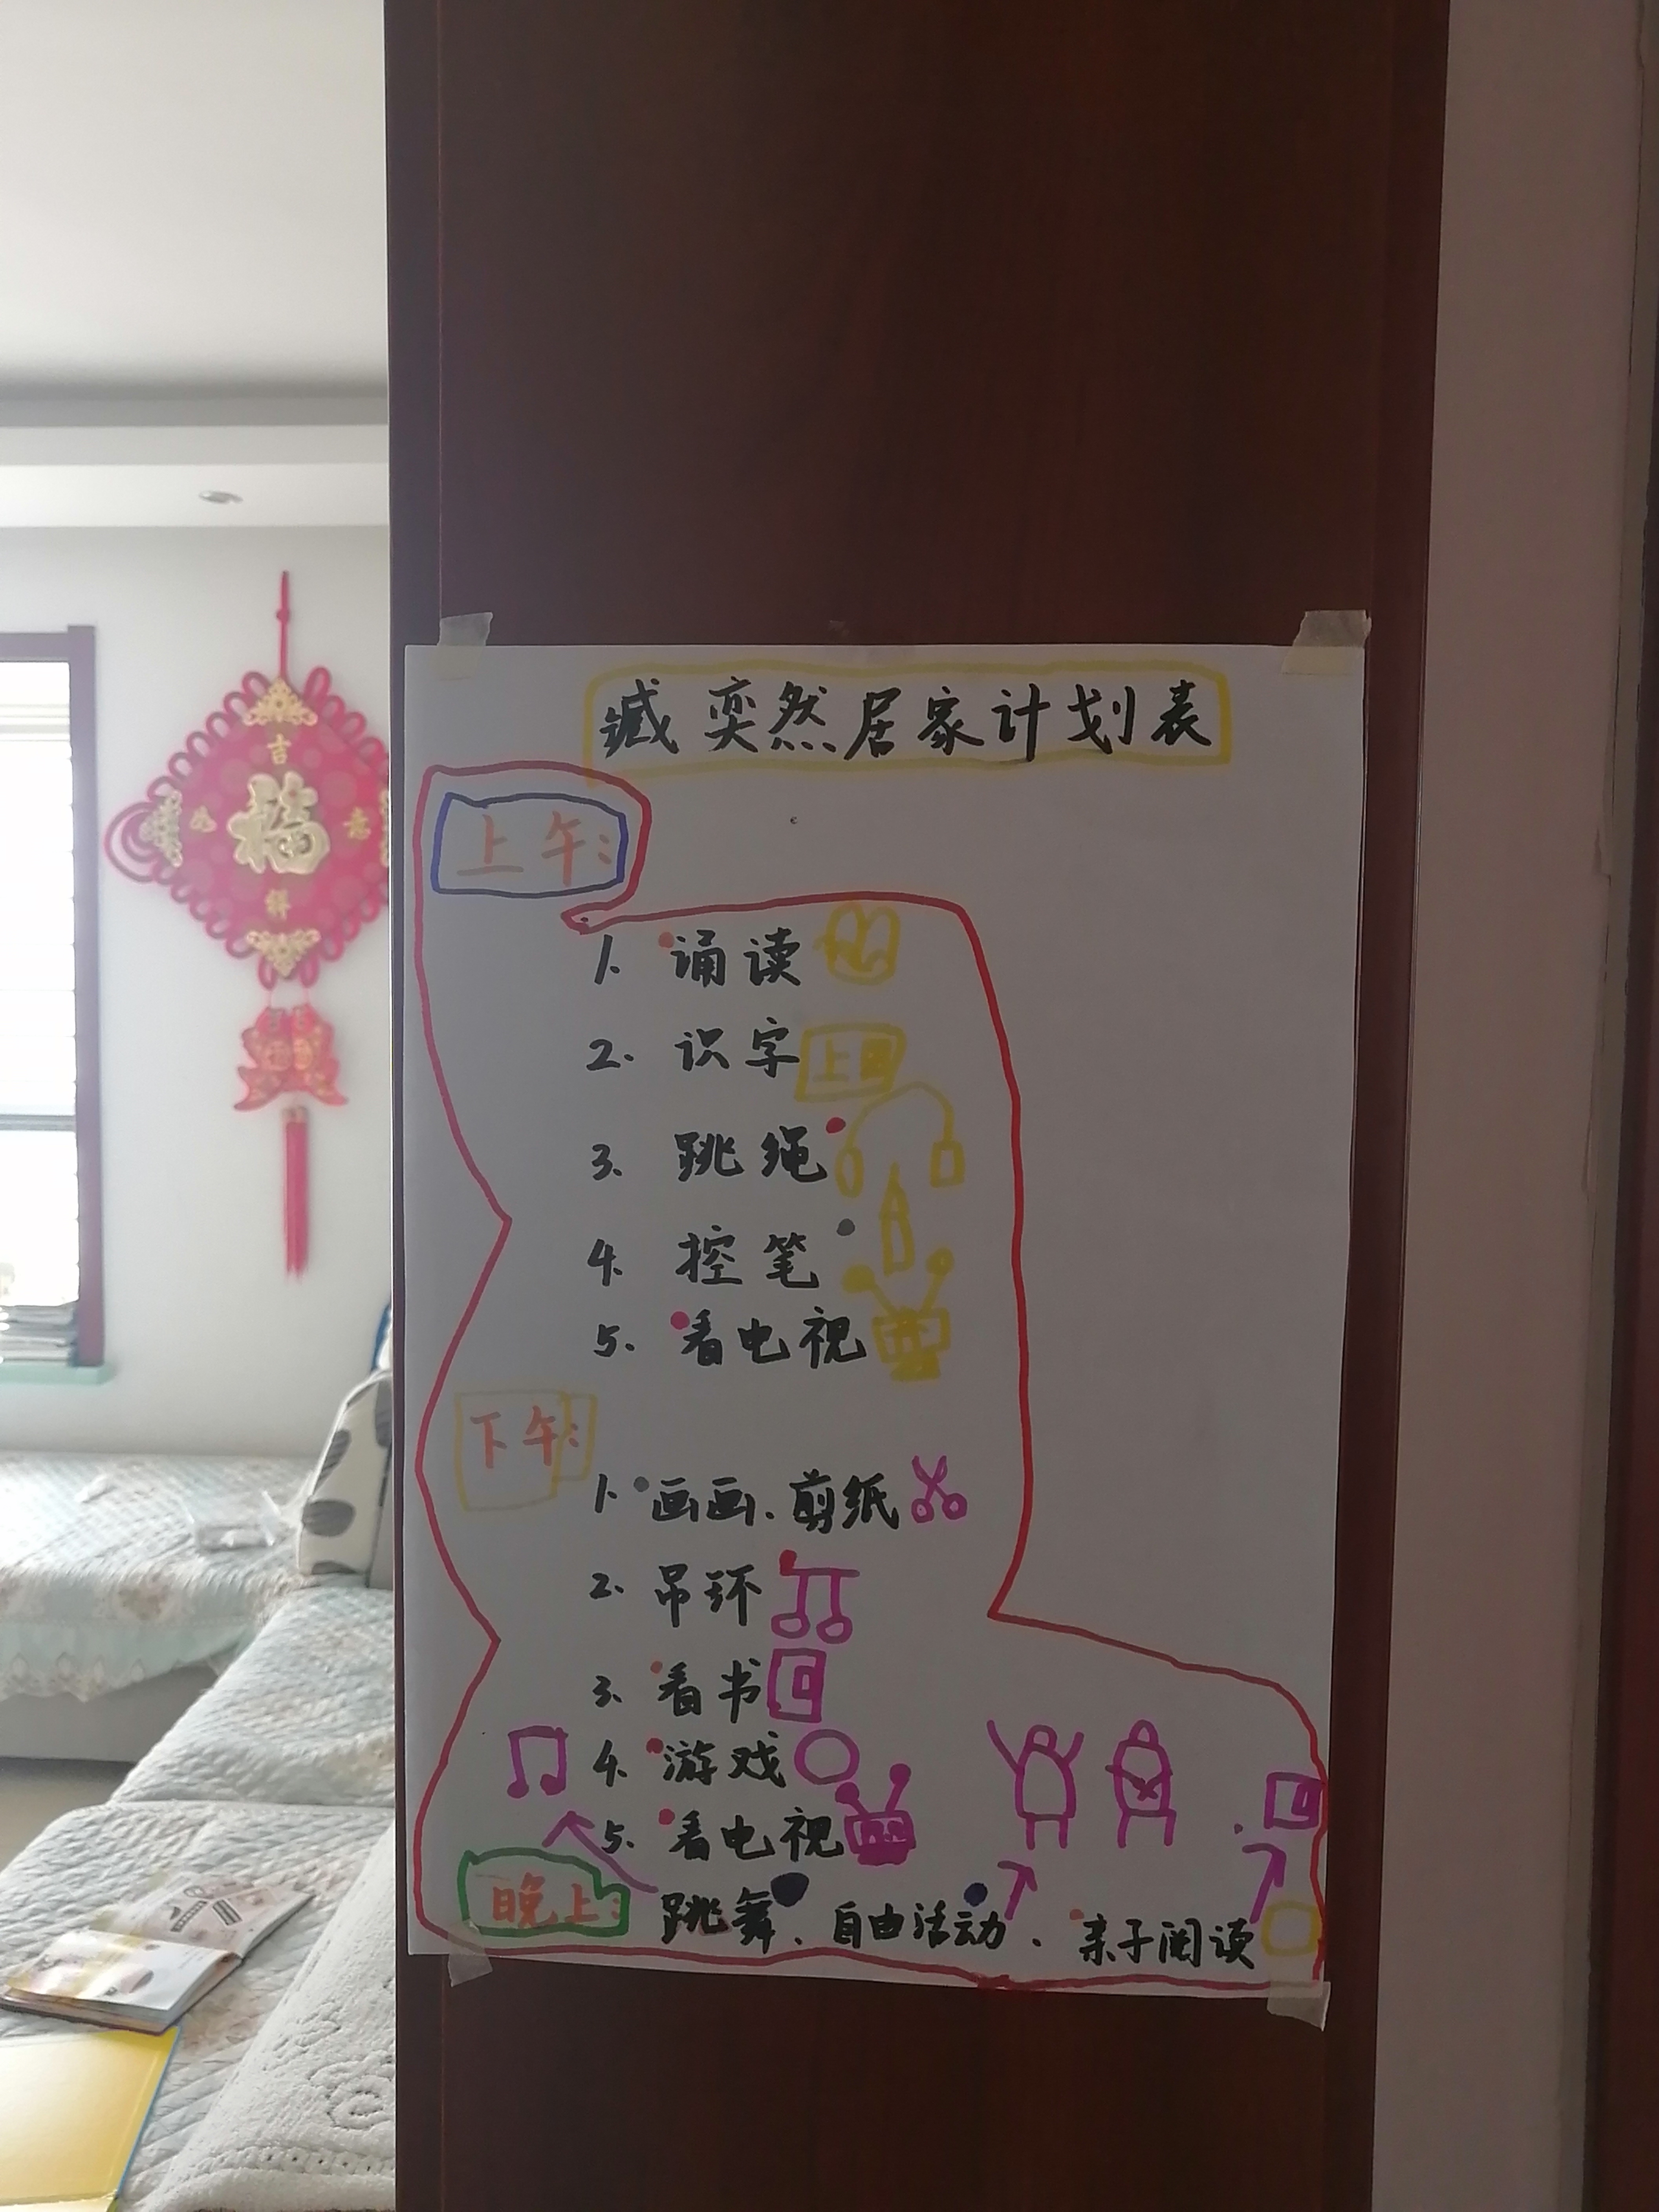 吉
福
祥
意
臧奕然居家计划表
上午:
1. 诵读
2. 识字
上
3. 跳绳
4. 控笔
5. 看电视
下午:
1. 画画、剪纸
2. 吊环
3. 看书
4. 游戏
5. 看电视
晚上: 跳舞、自由活动、亲子阅读